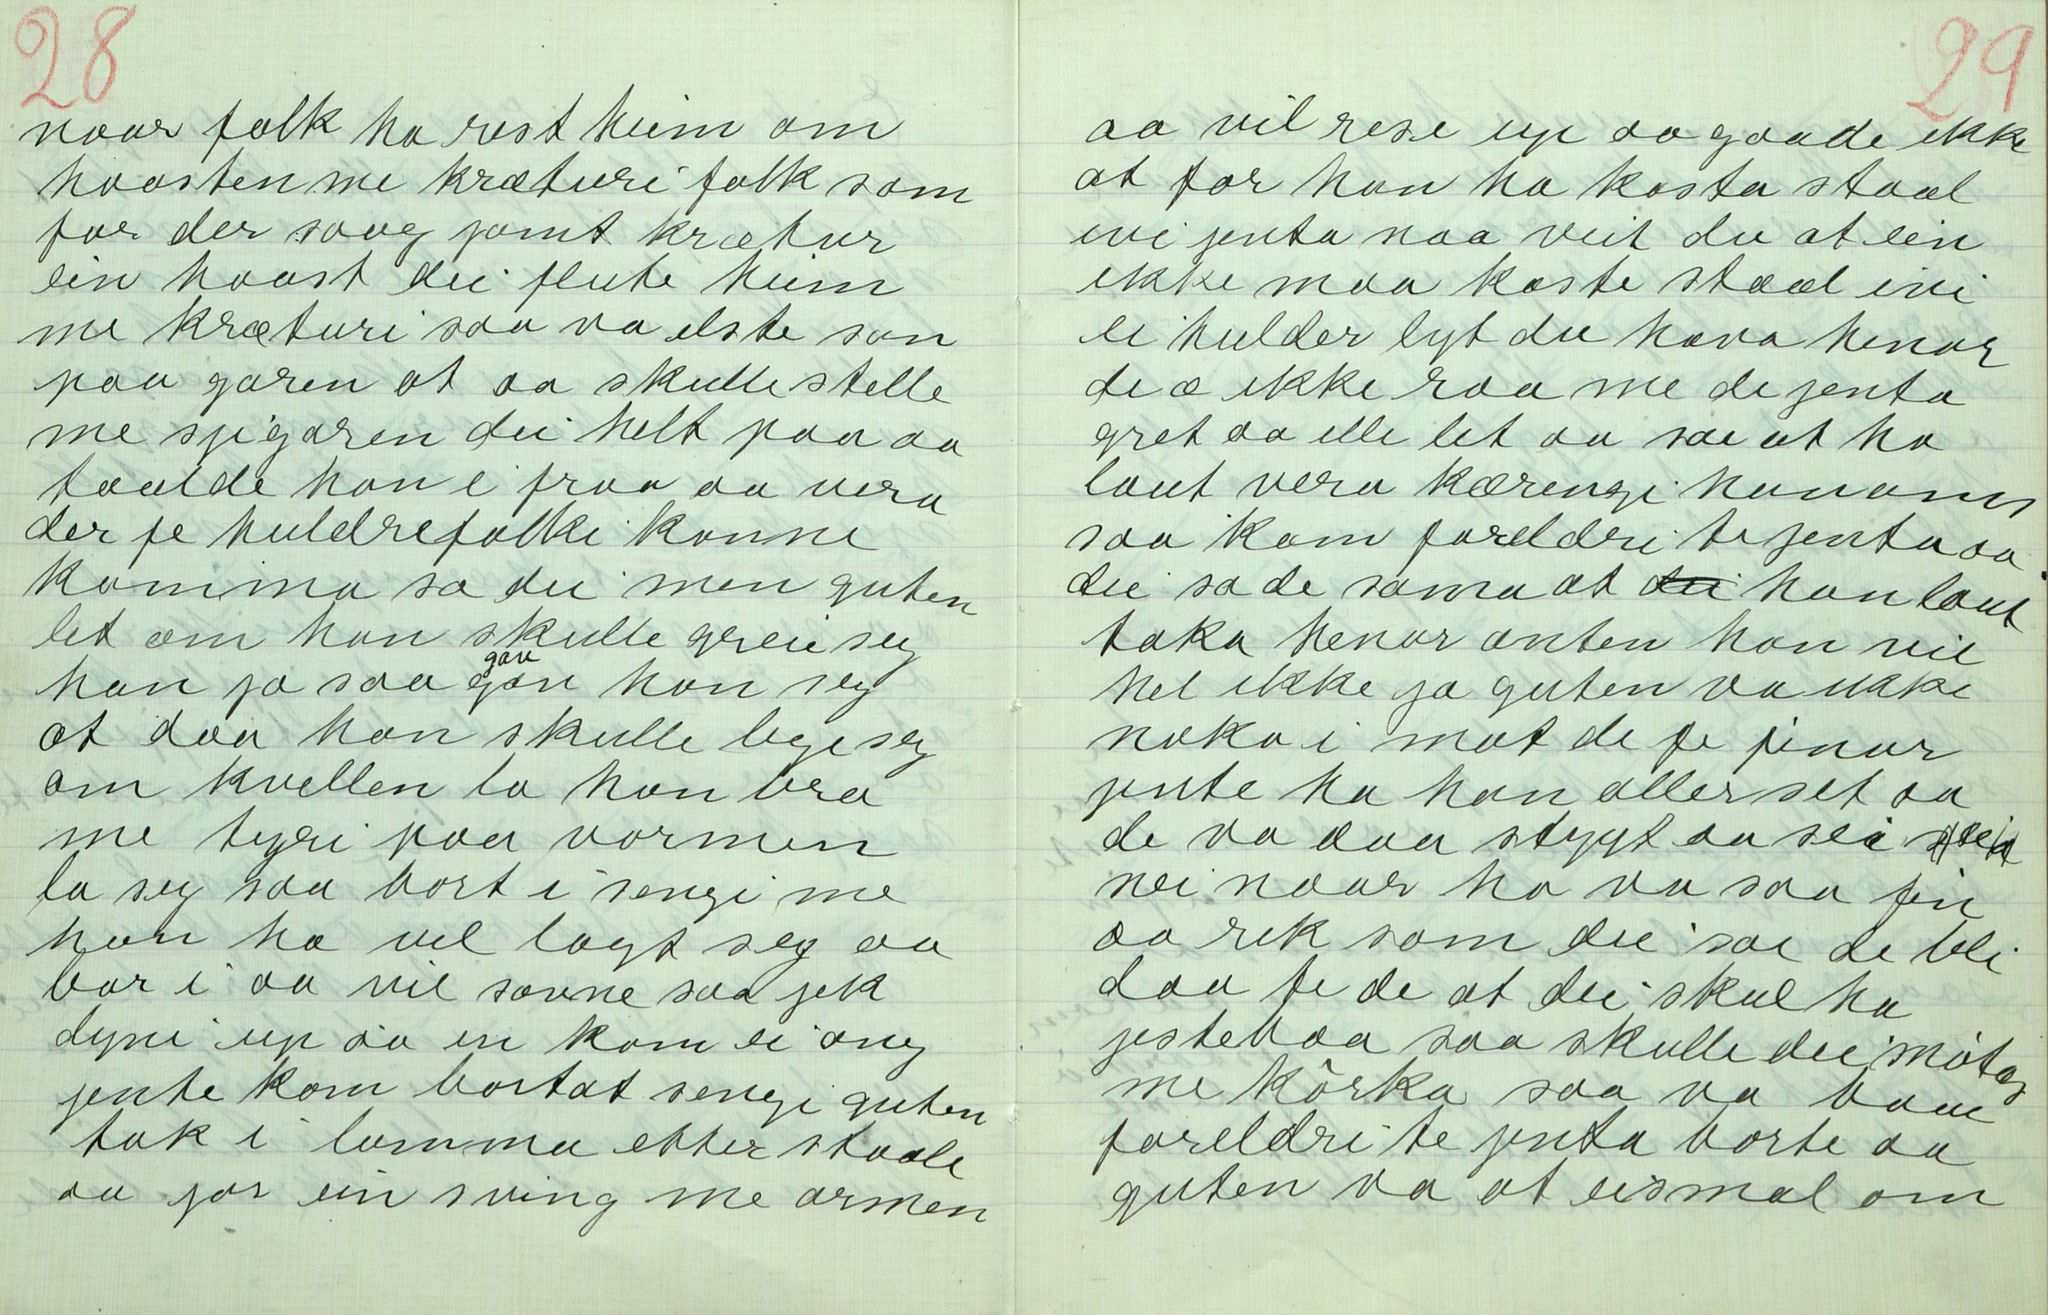 28
naar folk ha rest heim om
haasten me kræturi folk som
for der saag jamt krætur
ein haast dei flute heim
me kræturi saa va elste son
paa garen at aa skulle stelle
me spigaren dei helt paa aa
taalde han i fraa aa vera
der fe huldrefolki konne
komma sa dei men guten
let om han skulle greie seg
han ja saa gav gav han seg
at daa han skulle legje seg
om kvellen la han bra
me tyri paa varmen
la seg saa bort i sengi me
han ha vel lagt seg aa
bar i aa vil sovne saa jek
dyni up aa in kom ei ong
jente kom bortat sengi guten
tok i lomma etter staale
aa jor ein sving me armen
29
aa vil rese up aa gaade ikke
at for han ha kosta staal
ivi jenta naa veit du at ein
ikke maa koste staal ivi
ei hulder lyt du hava henar
de æ ikke raa me de jenta
gret aa ille let aa sae at ho
laut vera kærengi hanoms
saa kom foreldri te jenta aa
dei sa de sama at dei han laut
taka henar anten han vil
hel ikke ja guten va ikke
noko i mot de fe finar
jente ha han aller set aa
de va daa stygt aa sei
nei naar ho va saa fin
aa rik som dei sae de bli
daa fe de at dei skul ha
jestebaa saa skulle dei møtas
me kôrka saa va baae
foreldri te jenta borte aa
guten va at eismal om